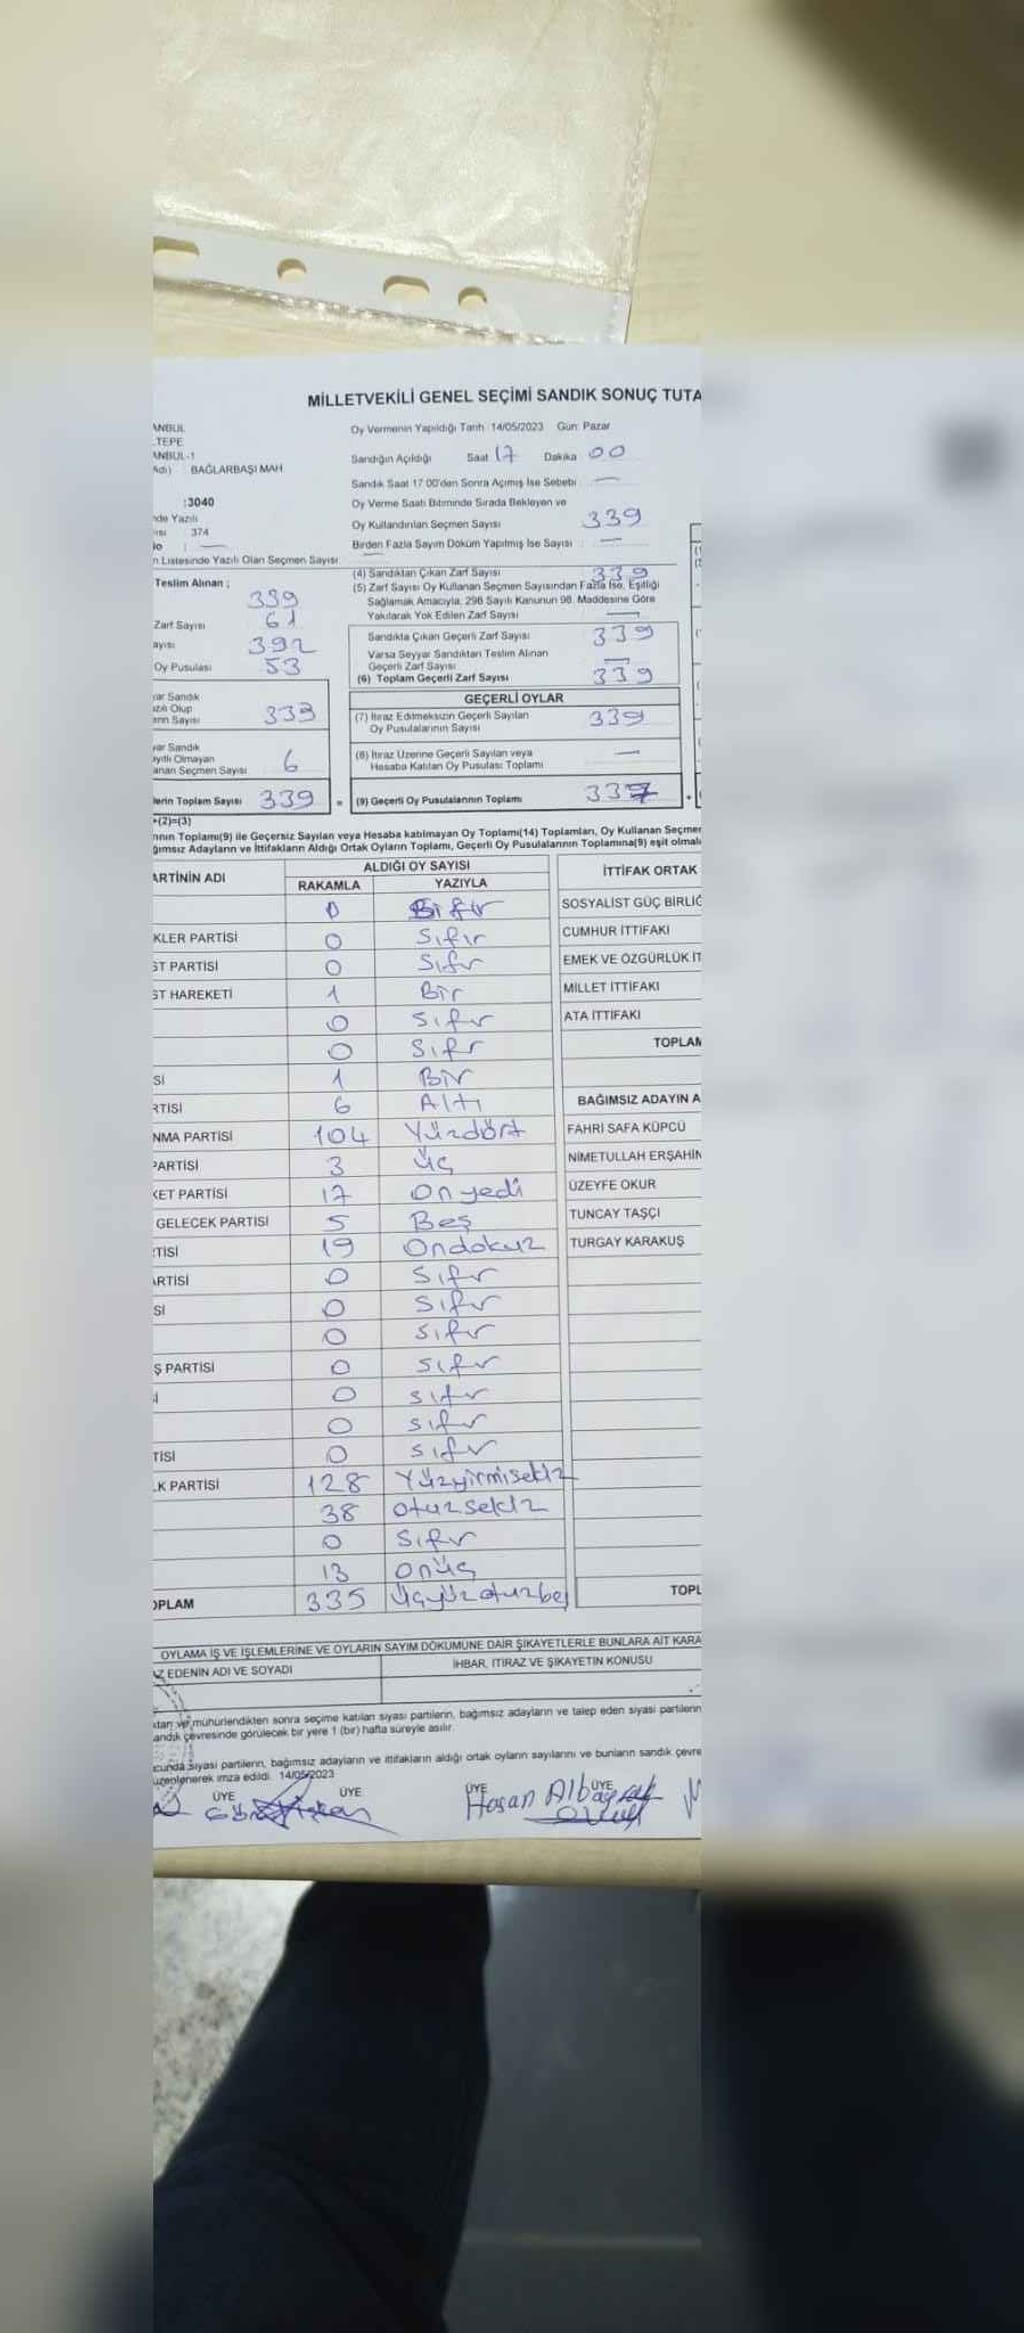 MİLLETVEKİLİ GENEL SEÇİMİ SANDIK SONUÇ TUTA
ANBUL
TEPE
ANBUL-1
Adı) BAĞLARBAŞI MAH
:3040
nde Yazılı
ısı 374
lo : —
n Listesinde Yazılı Olan Seçmen Sayısı
Oy Vermenin Yapıldığı Tarih 14/05/2023 Gün: Pazar
Sandığın Açıldığı Saat 17 Dakika 00
Sandık Saat 17 00'den Sonra Açımış İse Sebebi —
Oy Verme Saati Bitiminde Sırada Bekleyen ve
Oy Kullandırılan Seçmen Sayısı 339
Birden Fazla Sayım Döküm Yapılmış İse Sayısı : —
Teslim Alınan ;
339
Zarf Sayısı 61
ayısı 392
Oy Pusulası 53
(4) Sandıktan Çıkan Zarf Sayısı 339
(5) Zarf Sayısı Oy Kullanan Seçmen Sayısından Fazla İse, Eşitliği
Sağlamak Amacıyla, 298 Sayılı Kanunun 98. Maddesine Göre
Yakılarak Yok Edilen Zarf Sayısı —
Sandıkta Çıkan Geçerli Zarf Sayısı 339
Varsa Seyyar Sandıktan Teslim Alınan
Geçerli Zarf Sayısı —
(6) Toplam Geçerli Zarf Sayısı 339
yar Sandık
ızılı Olup
anın Sayısı 333
yar Sandık
ıyıtlı Olmayan
anan Seçmen Sayısı 6
lerin Toplam Sayısı 339 =
GEÇERLİ OYLAR
(7) İtiraz Edilmeksizin Geçerli Sayılan
Oy Pusulalarının Sayısı 339
(8) İtiraz Üzerine Geçerli Sayılan veya
Hesaba Katılan Oy Pusulası Toplamı —
(9) Geçerli Oy Pusulalarının Toplamı
+(2)=(3)
nının Toplamı(9) ile Geçersiz Sayılan veya Hesaba katılmayan Oy Toplamı(14) Toplamları, Oy Kullanan Seçmen
ğımsız Adayların ve İttifakların Aldığı Ortak Oyların Toplamı, Geçerli Oy Pusulalarının Toplamına(9) eşit olmalı
ARTİNİN ADI ALDIĞI OY SAYISI
RAKAMLA YAZIYLA
0
KLER PARTİSİ 0 Sıfır
ST PARTİSİ 0 Sıfır
ST HAREKETİ 1 Bir
0 Sıfır
0 Sıfır
Sİ 1 Bir
RTİSİ 6 Altı
NMA PARTİSİ 104 Yüzdört
PARTİSİ 3 Üç
KET PARTİSİ 17 Onyedi
GELECEK PARTİSİ 5 Beş
TİSİ 19 Ondokuz
ARTİSİ 0 Sıfır
Sİ 0 Sıfır
0 Sıfır
Ş PARTİSİ 0 Sıfır
İ 0 Sıfır
0 Sıfır
TİSİ 0 Sıfır
LK PARTİSİ 128 Yüzyirmisekiz
38 otuzsekiz
0 Sıfır
13 Onüç
OPLAM 335 Üçyüzotuzbeş
İTTİFAK ORTAK
SOSYALİST GÜÇ BİRLİĞ
CUMHUR İTTİFAKI
EMEK VE ÖZGÜRLÜK İT
MİLLET İTTİFAKI
ATA İTTİFAKI
TOPLAM
BAĞIMSIZ ADAYIN A
FAHRİ SAFA KÜPCÜ
NİMETULLAH ERŞAHİN
ÜZEYFE OKUR
TUNCAY TAŞÇI
TURGAY KARAKUŞ
TOPL
OYLAMA İŞ VE İŞLEMLERİNE VE OYLARIN SAYIM DÖKÜMÜNE DAİR ŞİKAYETLERLE BUNLARA AİT KARA
Z EDENİN ADI VE SOYADI İHBAR, İTİRAZ VE ŞİKAYETİN KONUSU
ktan ve mühürlendikten sonra seçime katılan siyasi partilerin, bağımsız adayların ve talep eden siyasi partilerin
andık çevresinde görülecek bir yere 1 (bir) hafta süreyle asılır.
cunda siyasi partilerin, bağımsız adayların ve ittifakların aldığı ortak oyların sayılarını ve bunların sandık çevre
üzenlenerek imza edildi. 14/05/2023
ÜYE ÜYE ÜYE ÜYE
Hasan Albayrak